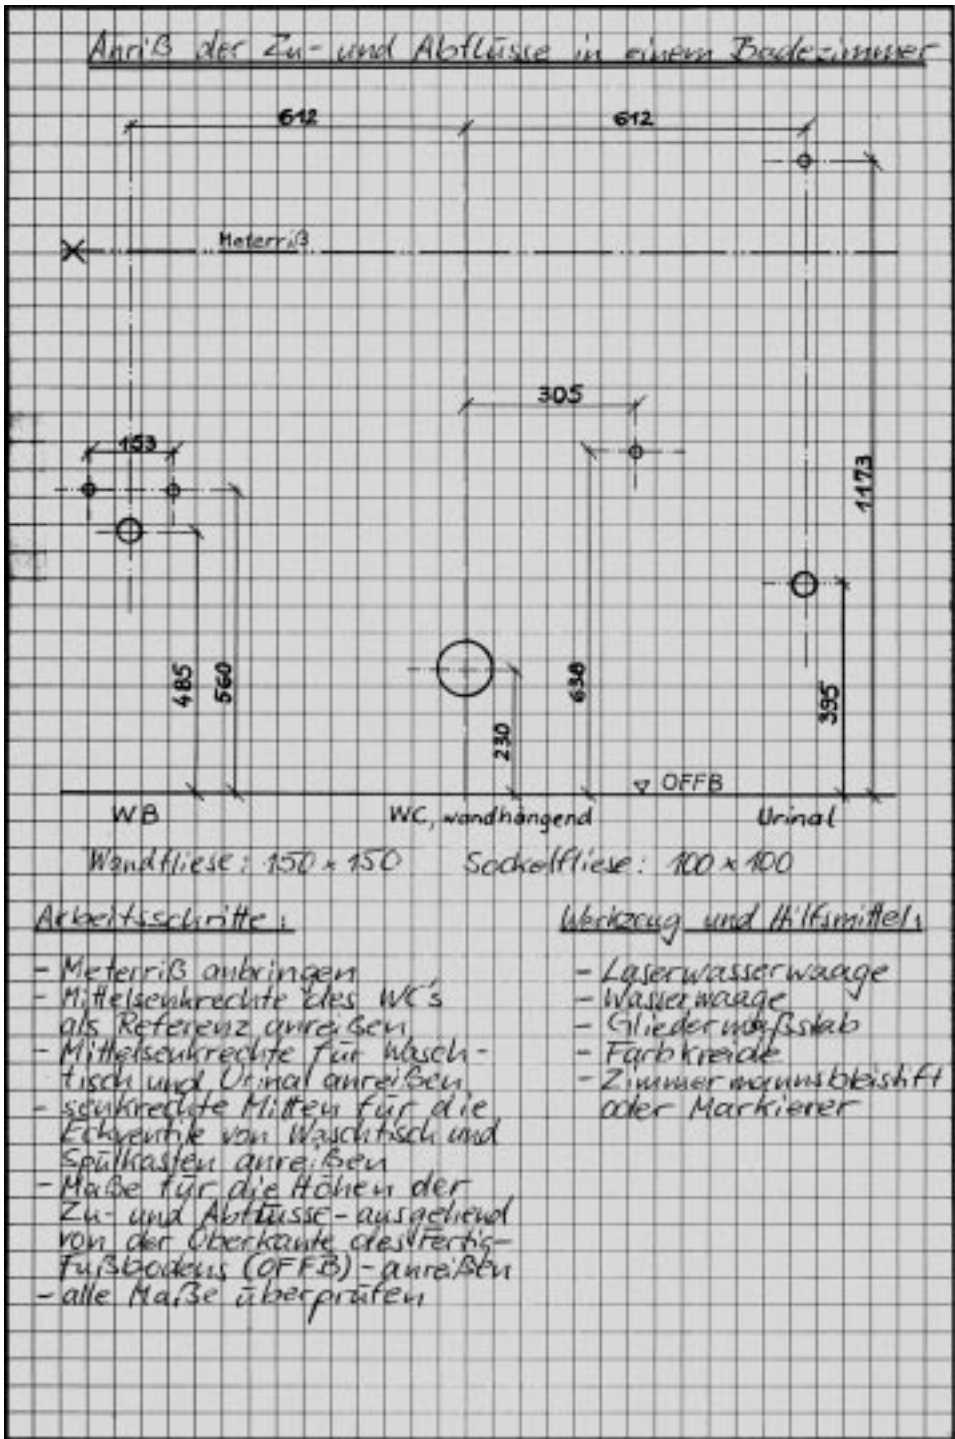 Anriß der Zu- und Abflüsse in einem Badezimmer
612 612
Meterriß
305
153
1173
485
560
638
395
230
OFFB
WB WC, wandhängend Urinal
Wandfliese: 150 x 150 Sockelfliese: 100 x 100
Arbeitsschritte:
- Meterriß anbringen
- Mittelsenkrechte des WC's
als Referenz anreißen
- Mittelsenkrechte für Wasch-
tisch und Urinal anreißen
- senkrechte Mitten für die
Eckventile von Waschtisch und
Spülkasten anreißen
- Maße für die Höhen der
Zu- und Abflüsse - ausgehend
von der Oberkante des Fertig-
fußbodens (OFFB) - anreißen
- alle Maße überprüfen
Werkzeug und Hilfsmittel:
- Laserwasserwaage
- Wasserwaage
- Gliedermaßstab
- Farbkreide
- Zimmermannsbleistift
oder Markierer